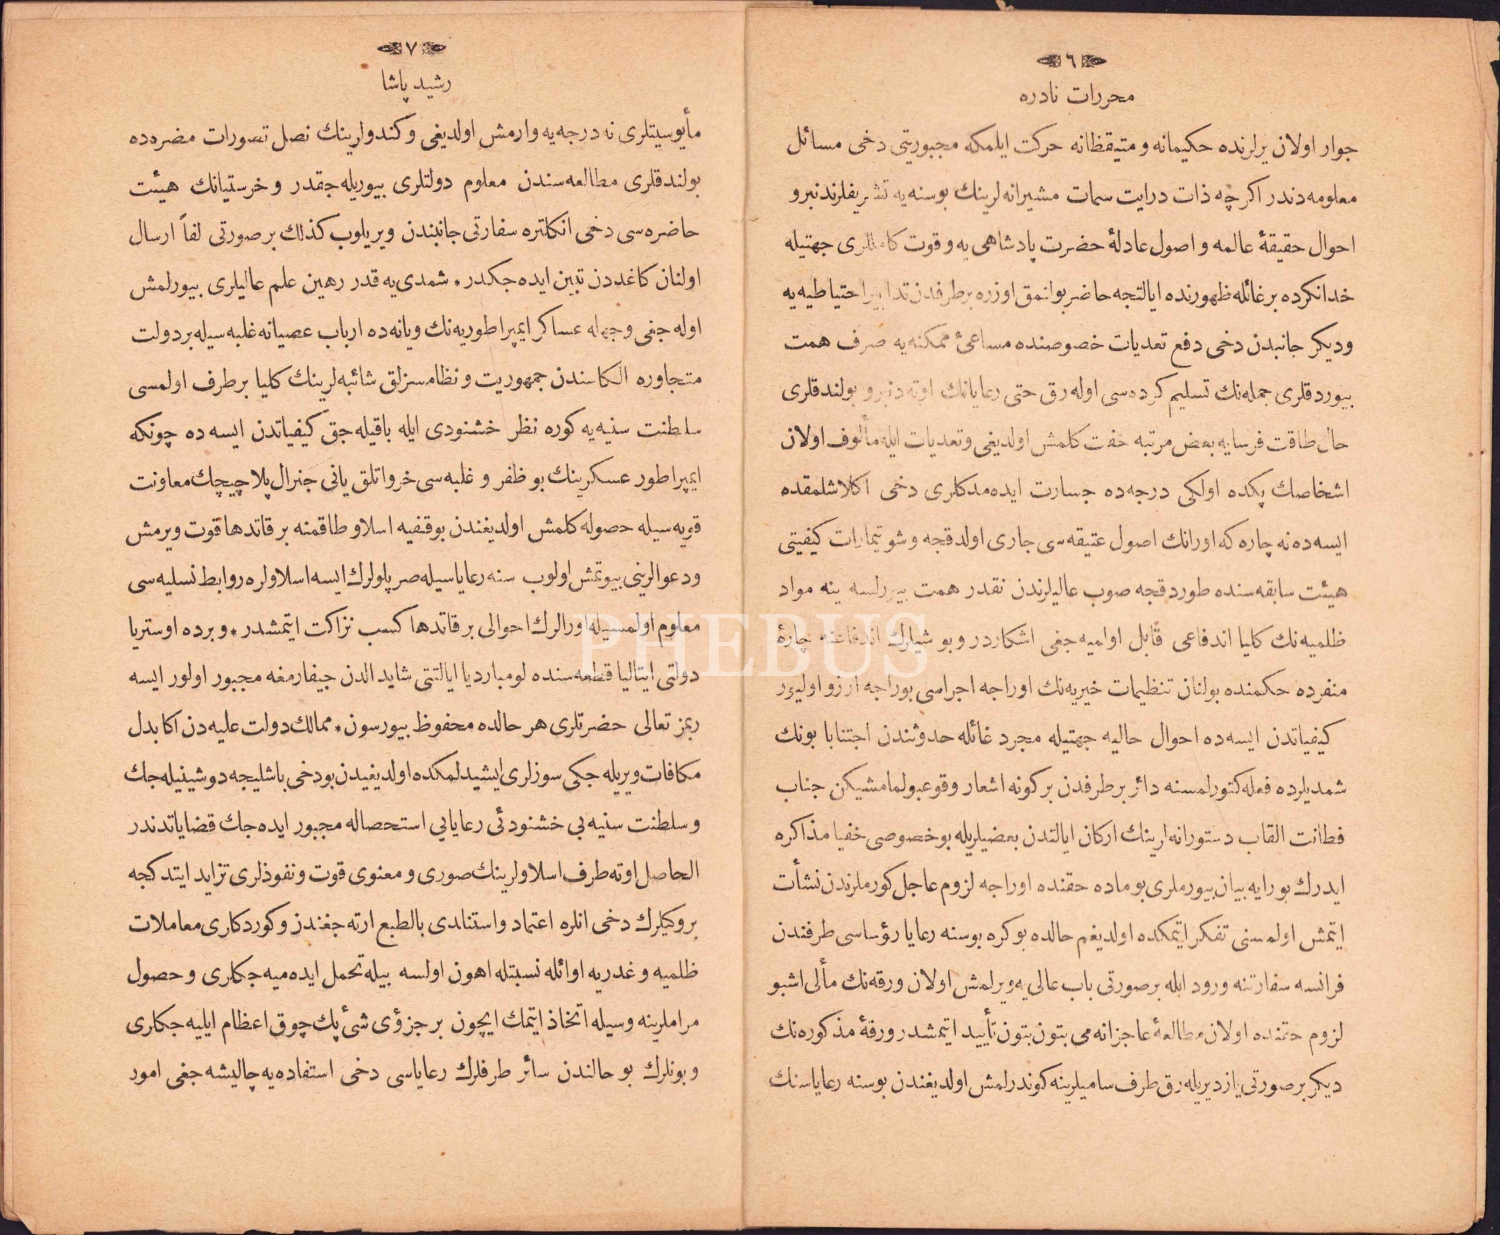 ٦
محررات نادره
جوار اولان يرلرنده حكيمانه و متيقظانه حركت ايلمكه مجبوريتى دخى مسائل
معلومه دندر اكرچه ذات درايت سمات مشيرانه لرينك بوسنه يه تشريفلرندنبرو
احوال حقيقۀ عالمه و اصول عادلۀ حضرت پادشاهى يه و قوت كامللرى جهتيله
خدانكرده بر غائله ظهورنده ايالتجه حاضر بولنمق اوزره بر طرفدن تدابير احتياطيه يه
و ديكر جانبدن دخى دفع تعديات خصوصنده مساعئ ممكنه يه صرف همت
بيوردقلرى جمله نك تسليم كرده سى اوله رق حتى رعايانك اوته دنبرو بولندقلرى
حال طاقت فرسايه بعض مرتبه خفت كلمش اولديغى و تعديات ايله مألوف اولان
اشخاصك پكده اولكى درجه ده جسارت ايده مدكلرى دخى اكلاشلمقده
ايسه ده نه چاره كه اورانك اصول عتيقه سى جارى اولدقجه و شو تيمارات كيفيتى
هيئت سابقه سنده طوردقجه صوب عاليلرندن نقدر همت بيورلسه ينه مواد
ظلميه نك كليا اندفاعى قابل اوله ميه جغى اشكاردر و بو شيلرك اندفاعنه چارۀ
منفرده حكمنده بولنان تنظيمات خيريه نك اوراجه اجراسى بوراجه ارزو اولنور
كيفياتدن ايسه ده احوال حاليه جهتيله مجرد غائله حدوثندن اجتنابا بونك
شمديلرده فعله كتورلمسنه دائر بر طرفدن بر كونه اشعار وقوعبولمامشيكن جناب
فطانت القاب دستورانه لرينك اركان ايالتدن بعضيلريله بو خصوصى خفيا مذاكره
ايدرك بورايه بيان بيورملرى بو ماده حقنده اوراجه لزوم عاجل كورملرندن نشأت
ايتمش اولمسنى تفكر ايتمكده اولديغم حالده بو كره بوسنه رعايا رؤساسى طرفندن
فرانسه سفارتنه ورود ايله بر صورتى باب عالى يه ويرلمش اولان ورقه نك مألى اشبو
لزوم حقنده اولان مطالعۀ عاجزانه مى بتون بتون تأييد ايتمشدر ورقۀ مذكوره نك
ديكر بر صورتى يازديريله رق طرف ساميلرينه كوندرلمش اولديغندن بوسنه رعاياسنك
٧
رشيد پاشا
مأيوسيتلرى نه درجه يه وارمش اولديغى و كندولرينك نصل تصورات مضره ده
بولندقلرى مطالعه سندن معلوم دولتلرى بيوريله جقدر و خرستيانك هيئت
حاضره سى دخى انكلتره سفارتى جانبندن ويريلوب كذلك بر صورتى لفاً ارسال
اولنان كاغددن تبين ايده جكدر ٠ شمدى يه قدر رهين علم عاليلرى بيورلمش
اوله جغى وجهله عساكر ايمپراطوريه نك ويانه ده ارباب عصيانه غلبه سيله بر دولت
متجاوره الكاسندن جمهوريت و نظامسزلق شائبه لرينك كليا بر طرف اولمسى
سلطنت سنيه يه كوره نظر خشنودى ايله باقيله جق كيفياتدن ايسه ده چونكه
ايمپراطور عسكرينك بو ظفر و غلبه سى خرواتلق يانى جنرال يلاچيچك معاونت
قويه سيله حصوله كلمش اولديغندن بو قضيه اسلاو طاقمنه بر قاتدها قوت ويرمش
و دعوالرينى بيوتمش اولوب سنه رعاياسيله صرپلولرك ايسه اسلاولره روابط نسليه سى
معلوم اولمسيله اورالرك احوالى بر قاتدها كسب نزاكت ايتمشدر ٠ و برده اوستريا
دولتى ايتاليا قطعه سنده لومبارديا ايالتنى شايد الدن چيقارمغه مجبور اولور ايسه
ربمز تعالى حضرتلرى هر حالده محفوظ بيورسون ٠ ممالك دولت عليه دن اكا بدل
مكافات ويريله جكى سوزلرى ايشيدلمكده اولديغيدن بو دخى باشليجه دوشينيله جك
و سلطنت سنيه يى خشنودئ رعايايى استحصاله مجبور ايده جك قضاياتدندر
الحاصل اوته طرف اسلاولرينك صورى و معنوى قوت و نفوذلرى تزايد ايتدكجه
بروكيلرك دخى انلره اعتماد و استنادى بالطبع ارته جغندن و كوردكارى معاملات
ظلميه و غدريه اوائله نسبتله اهون اولسه بيله تحمل ايده ميه جكارى و حصول
مراملرينه وسيله اتخاذ ايتمك ايچون بر جزؤى شئ پك چوق اعظام ايليه جكارى
و بونلرك بو حالندن سائر طرفلرك رعاياسى دخى استفاده يه چاليشه جغى امور
PHEBUS